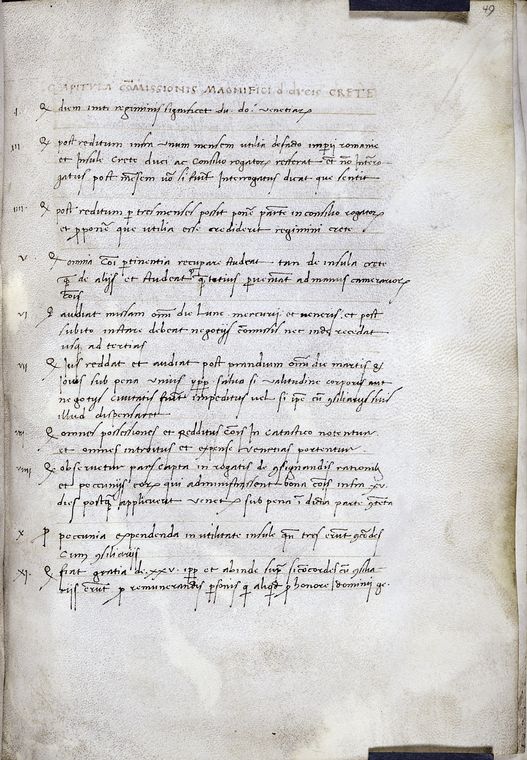 49
CAPITVLA COMISSIONIS MAGNIFICI d dvcis CRETE
I. diem regiminis significet du. do. venetiar
III post reditum infra unum mensem utilia de facto romanie
et Insule Crete duci ac Consilio rogator referat et no Intero
gatus post mesem si Interrogatus dicat que sentit
IIII. post reditum p tres menses possit pone parte in consilio rogator
et ppone que utilia esse crediderit regimini crete
V omnia coi ptinentia recupare studeat tan de insula crete
q de alijs et studeat q totius pueniat ad manus camerarior
cois
VI audiat missam omi die lune mercurij et ueneris et post
subito instare debeat negotijs comissis nec inde recedat
usq ad tertias
VII Jus reddat et audiat post prandium omi die martis &
jouis sub pena unius ypp saluo si ualitudine corporis aut
negotijs Ciuitatis impeditus uel si ipe cu siliarijs suis
illud dispensaret
VIII omnes possessiones et redditus cois In catastico notentur
et omnes introitus et expense venetias portentur
VIIII obseruetur pars capta in rogatis de signandis rationib
et peccunijs eor qui administrassent bona cois infra xv
dies postq applicuerit venet sub pena i dicta parte teta
X peccunia expendenda in utilitate insule qn tres erut cordes
Cum siliarijs
XI. fiat gratia de. xxv. ipp et abinde sup si concordes cu silia
rijs erut p remunerandis psonis q aliqd p honore dominij ge.